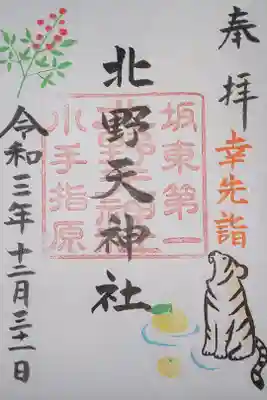 奉拝
幸先詣
北野天神社
坂東第一
小手指原
令和三年十二月三十一日